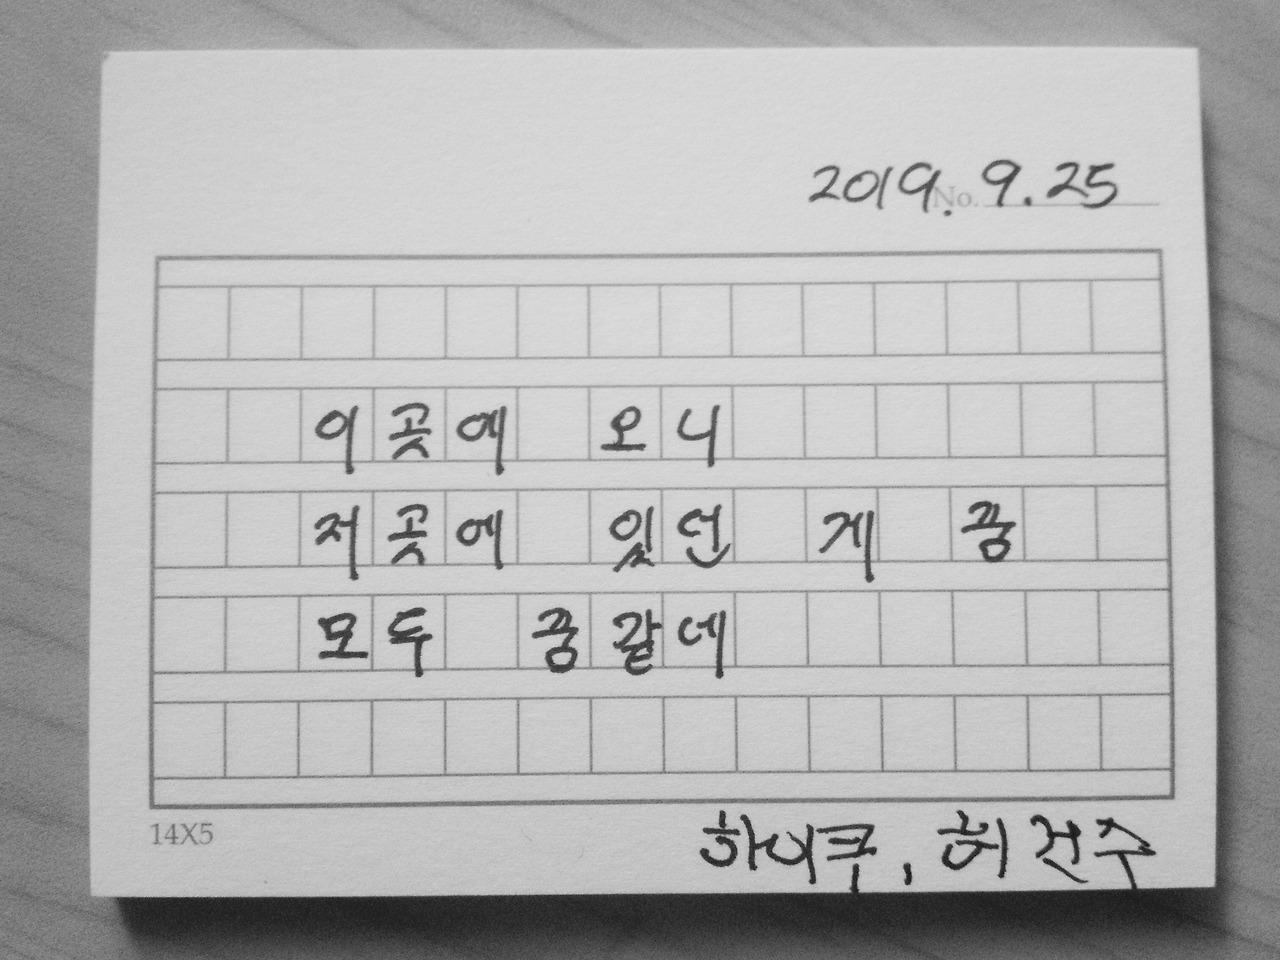 2019. 9. 25
No.
이곳에 오니
저곳에 있던 게 꿈
모두 꿈같네
14X5
하이쿠, 허건주